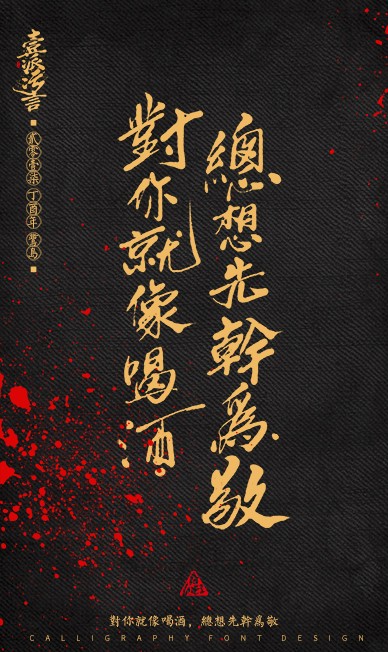 貳零壹柒 丁酉年
對你就像喝酒
總想先幹爲敬
對你就像喝酒，總想先幹爲敬
CALLIGRAPHY FONT DESIGN